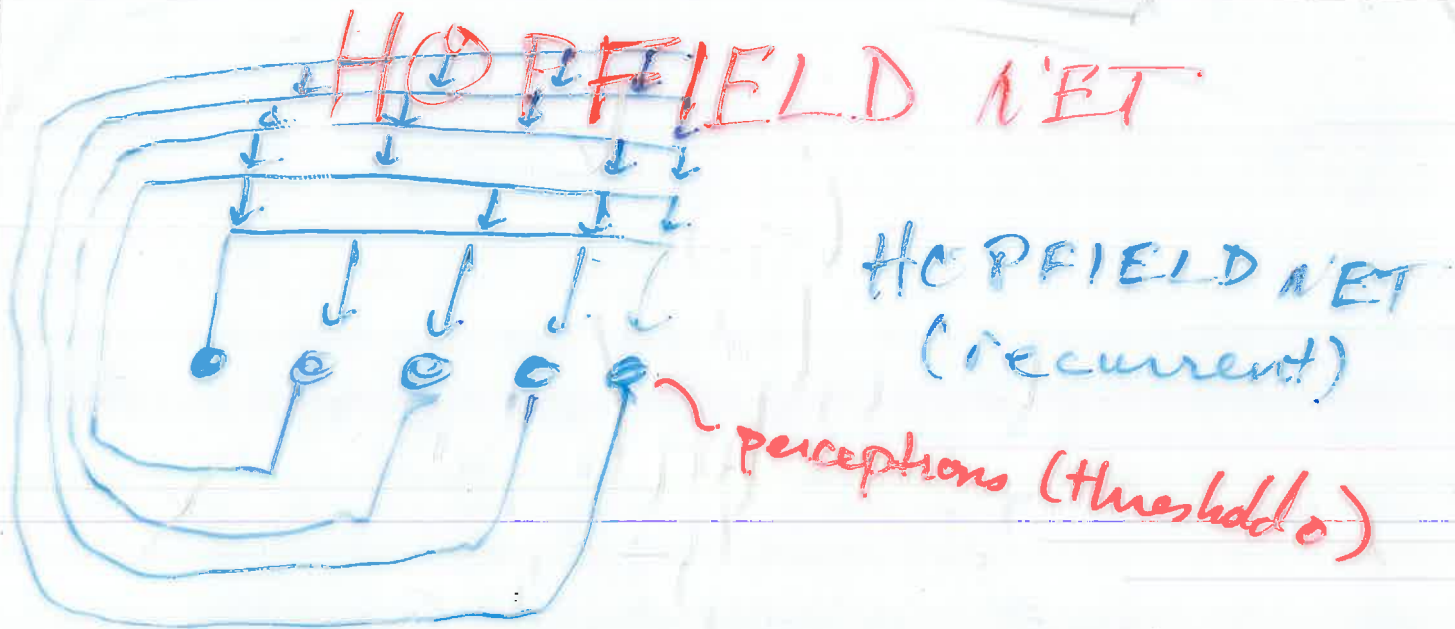 HOPFIELD NET
HOPFIELD NET
(recurrent)
perceptrons (threshold 0)